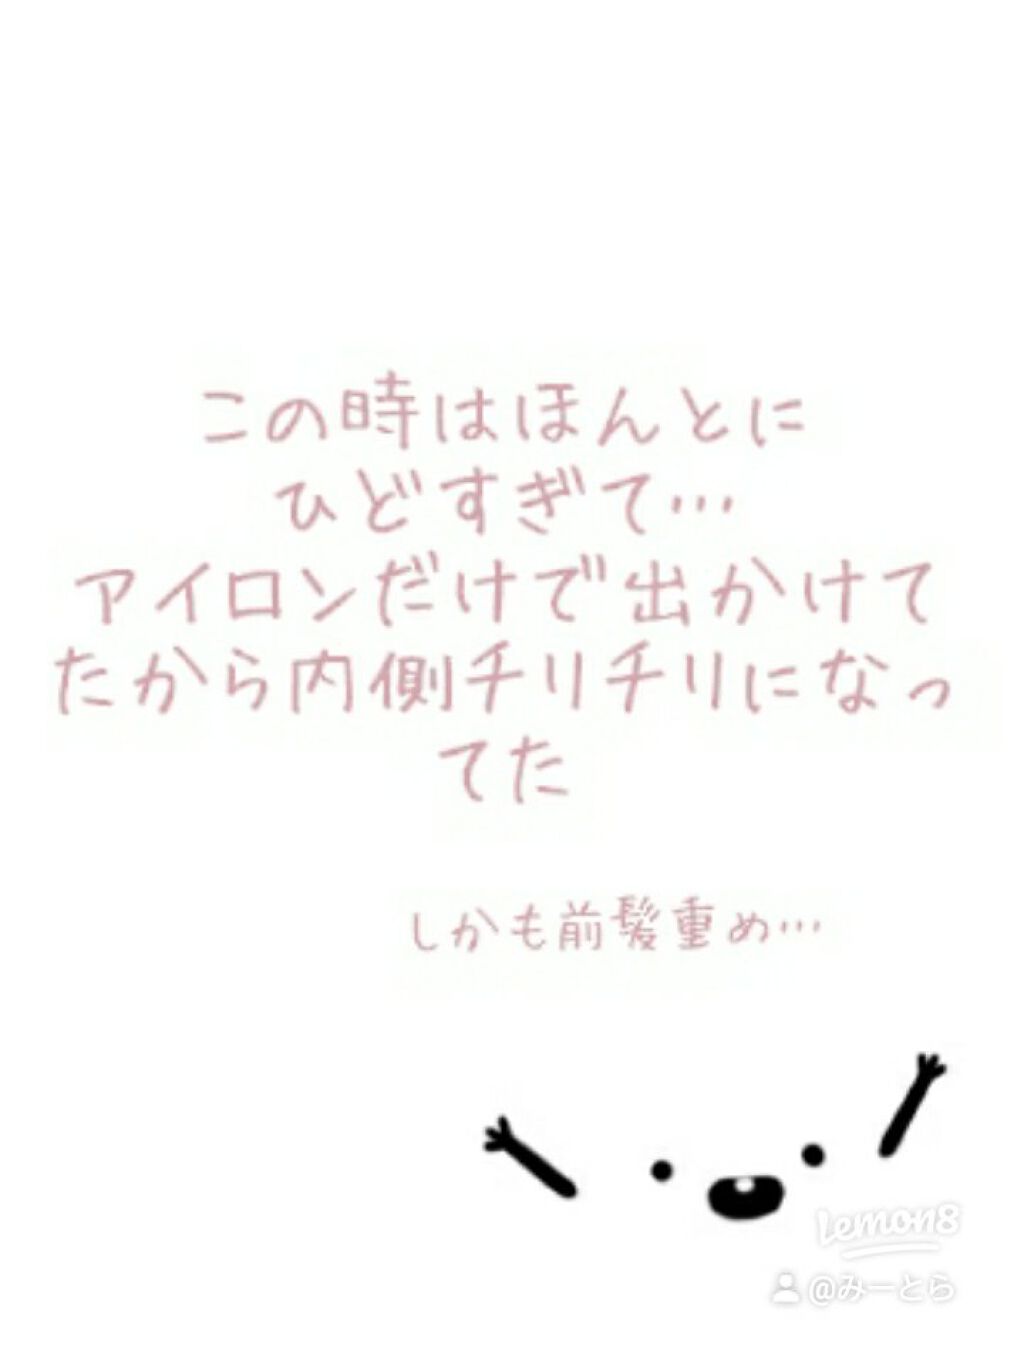 この時はほんとに
ひどすぎて…
アイロンだけで出かけて
たから内側チリチリになっ
てた
しかも前髪重め…
Lemon8
@みーとら